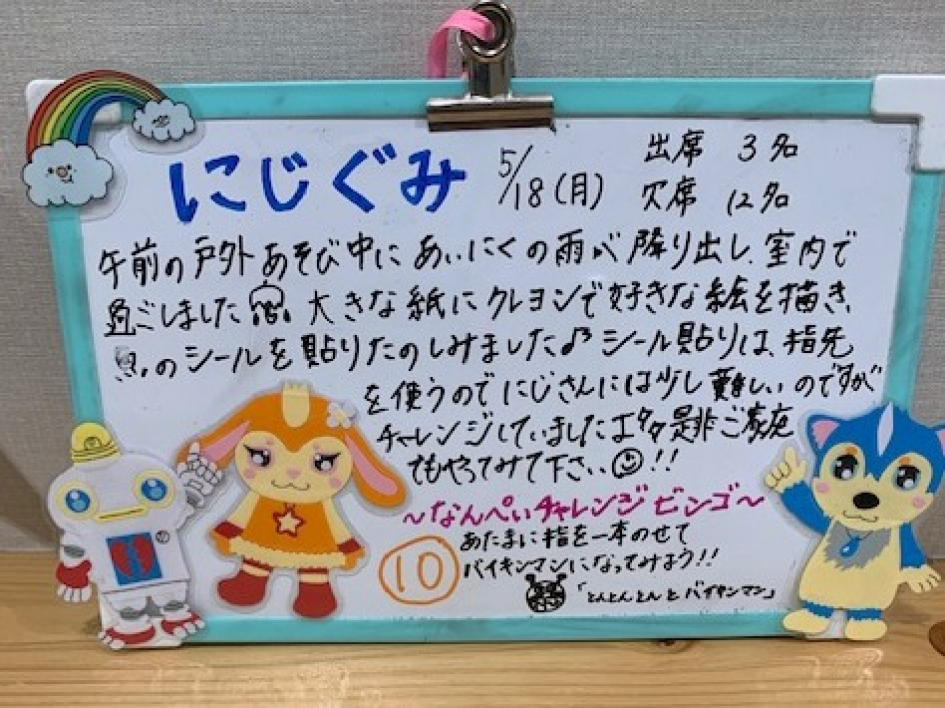 にじぐみ 5/18(月) 出席 3名
欠席 12名
午前の戸外あそび中にあいにくの雨が降り出し、室内で
過ごしました 大きな紙にクレヨンで好きな絵を描き、
魚のシールを貼りたのしみました♪シール貼りは、指先
を使うのでにじさんには少し難しいのですが
チャレンジしていました 是非ご家庭
でもやってみて下さい!!
〜なんぺいチャレンジビンゴ〜
10
あたまに指を一本のせて
バイキンマンになってみよう!!
「とんとんとんとバイキンマン」